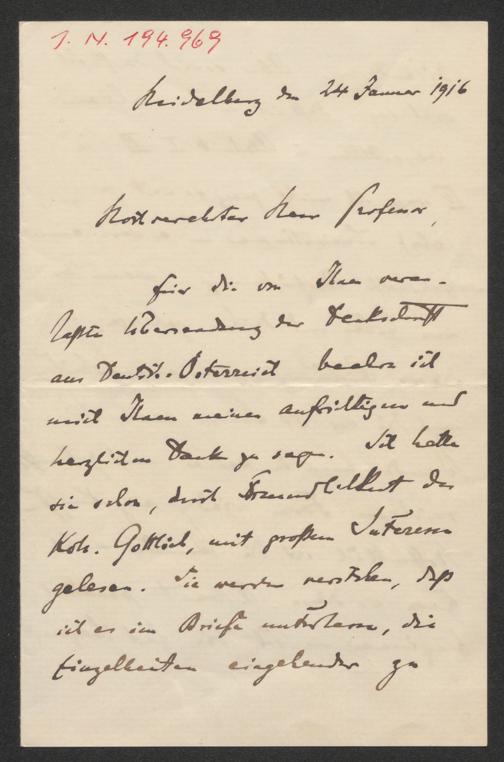 I. N. 194.969
Heidelberg den 24 Januar 1916
Hochverehrter Herr Professor,
für die von Ihnen veran-
laßte Übersendung der Denkschrift
aus Deutsch-Österreich beehre ich
mich Ihnen meinen aufrichtigen und
herzlichen Dank zu sagen. Ich hatte
sie schon, durch Freundlichkeit des
Koll. Gottlieb, mit großem Interesse
gelesen. Sie werden verstehen, daß
ich es im Briefe unterlasse, die
Einzelheiten eingehender zu